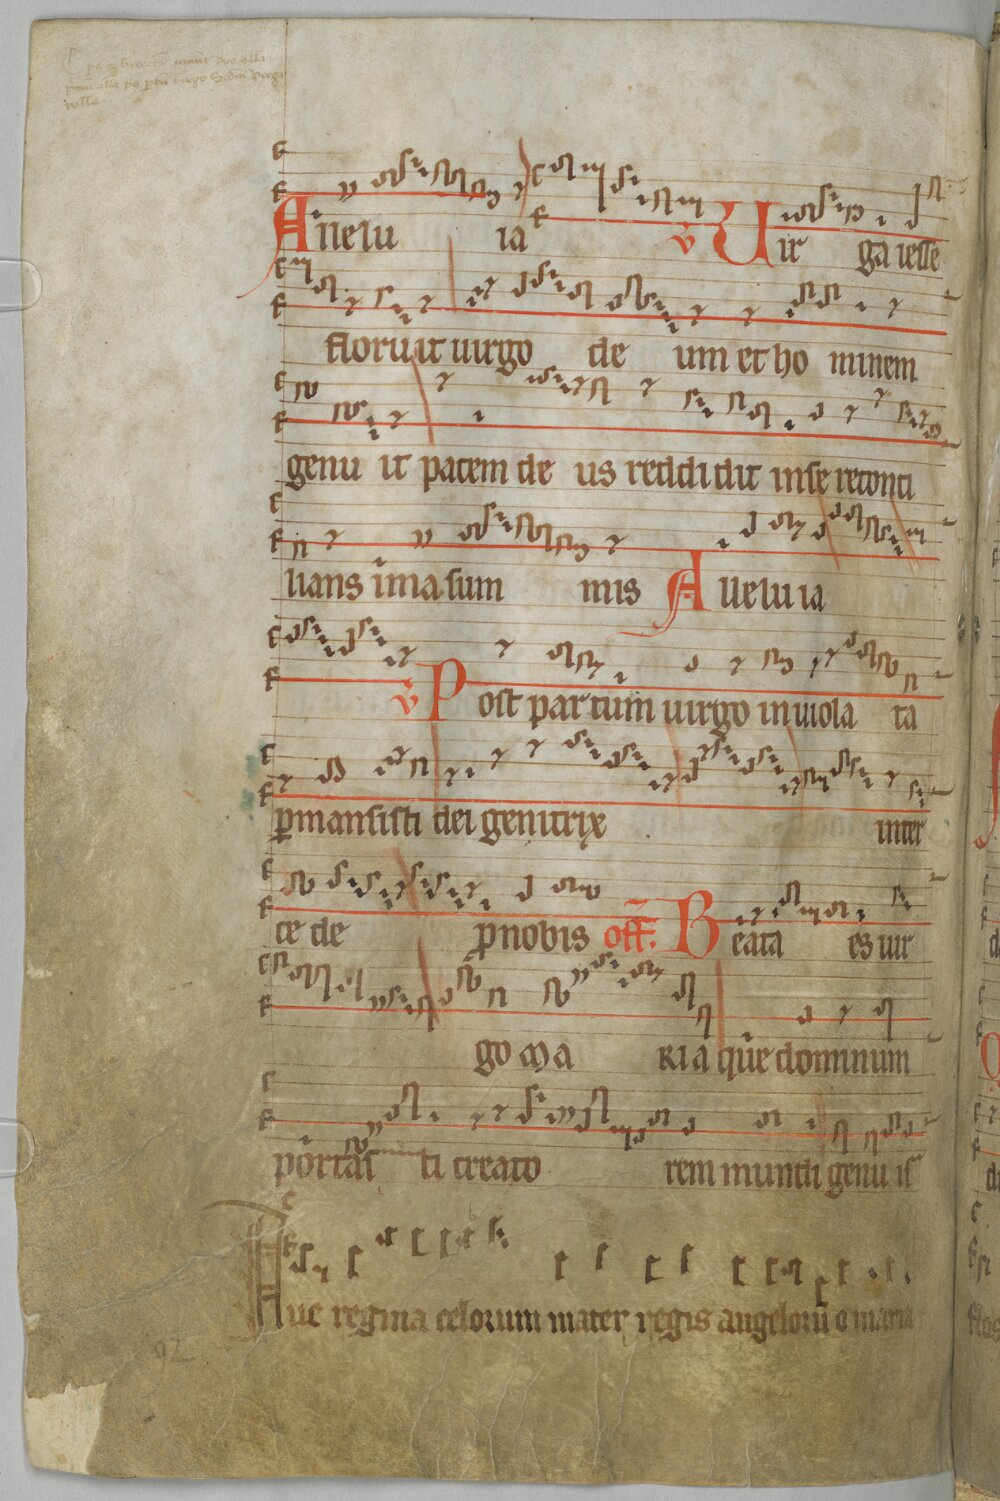 Alleluia ℣ Virga iesse
floruit uirgo deum et hominem
genuit pacem deus reddidit in se reconci
lians ima summis Alleluia
℣ Post partum uirgo inuiolata
ꝑmansisti dei genitrix inter
cede ꝓ nobis off. Beata es uir
go Maria que dominum
portasti creatorem mundi genuis
Aue regina celorum mater regis angeloru̅ o maria
92